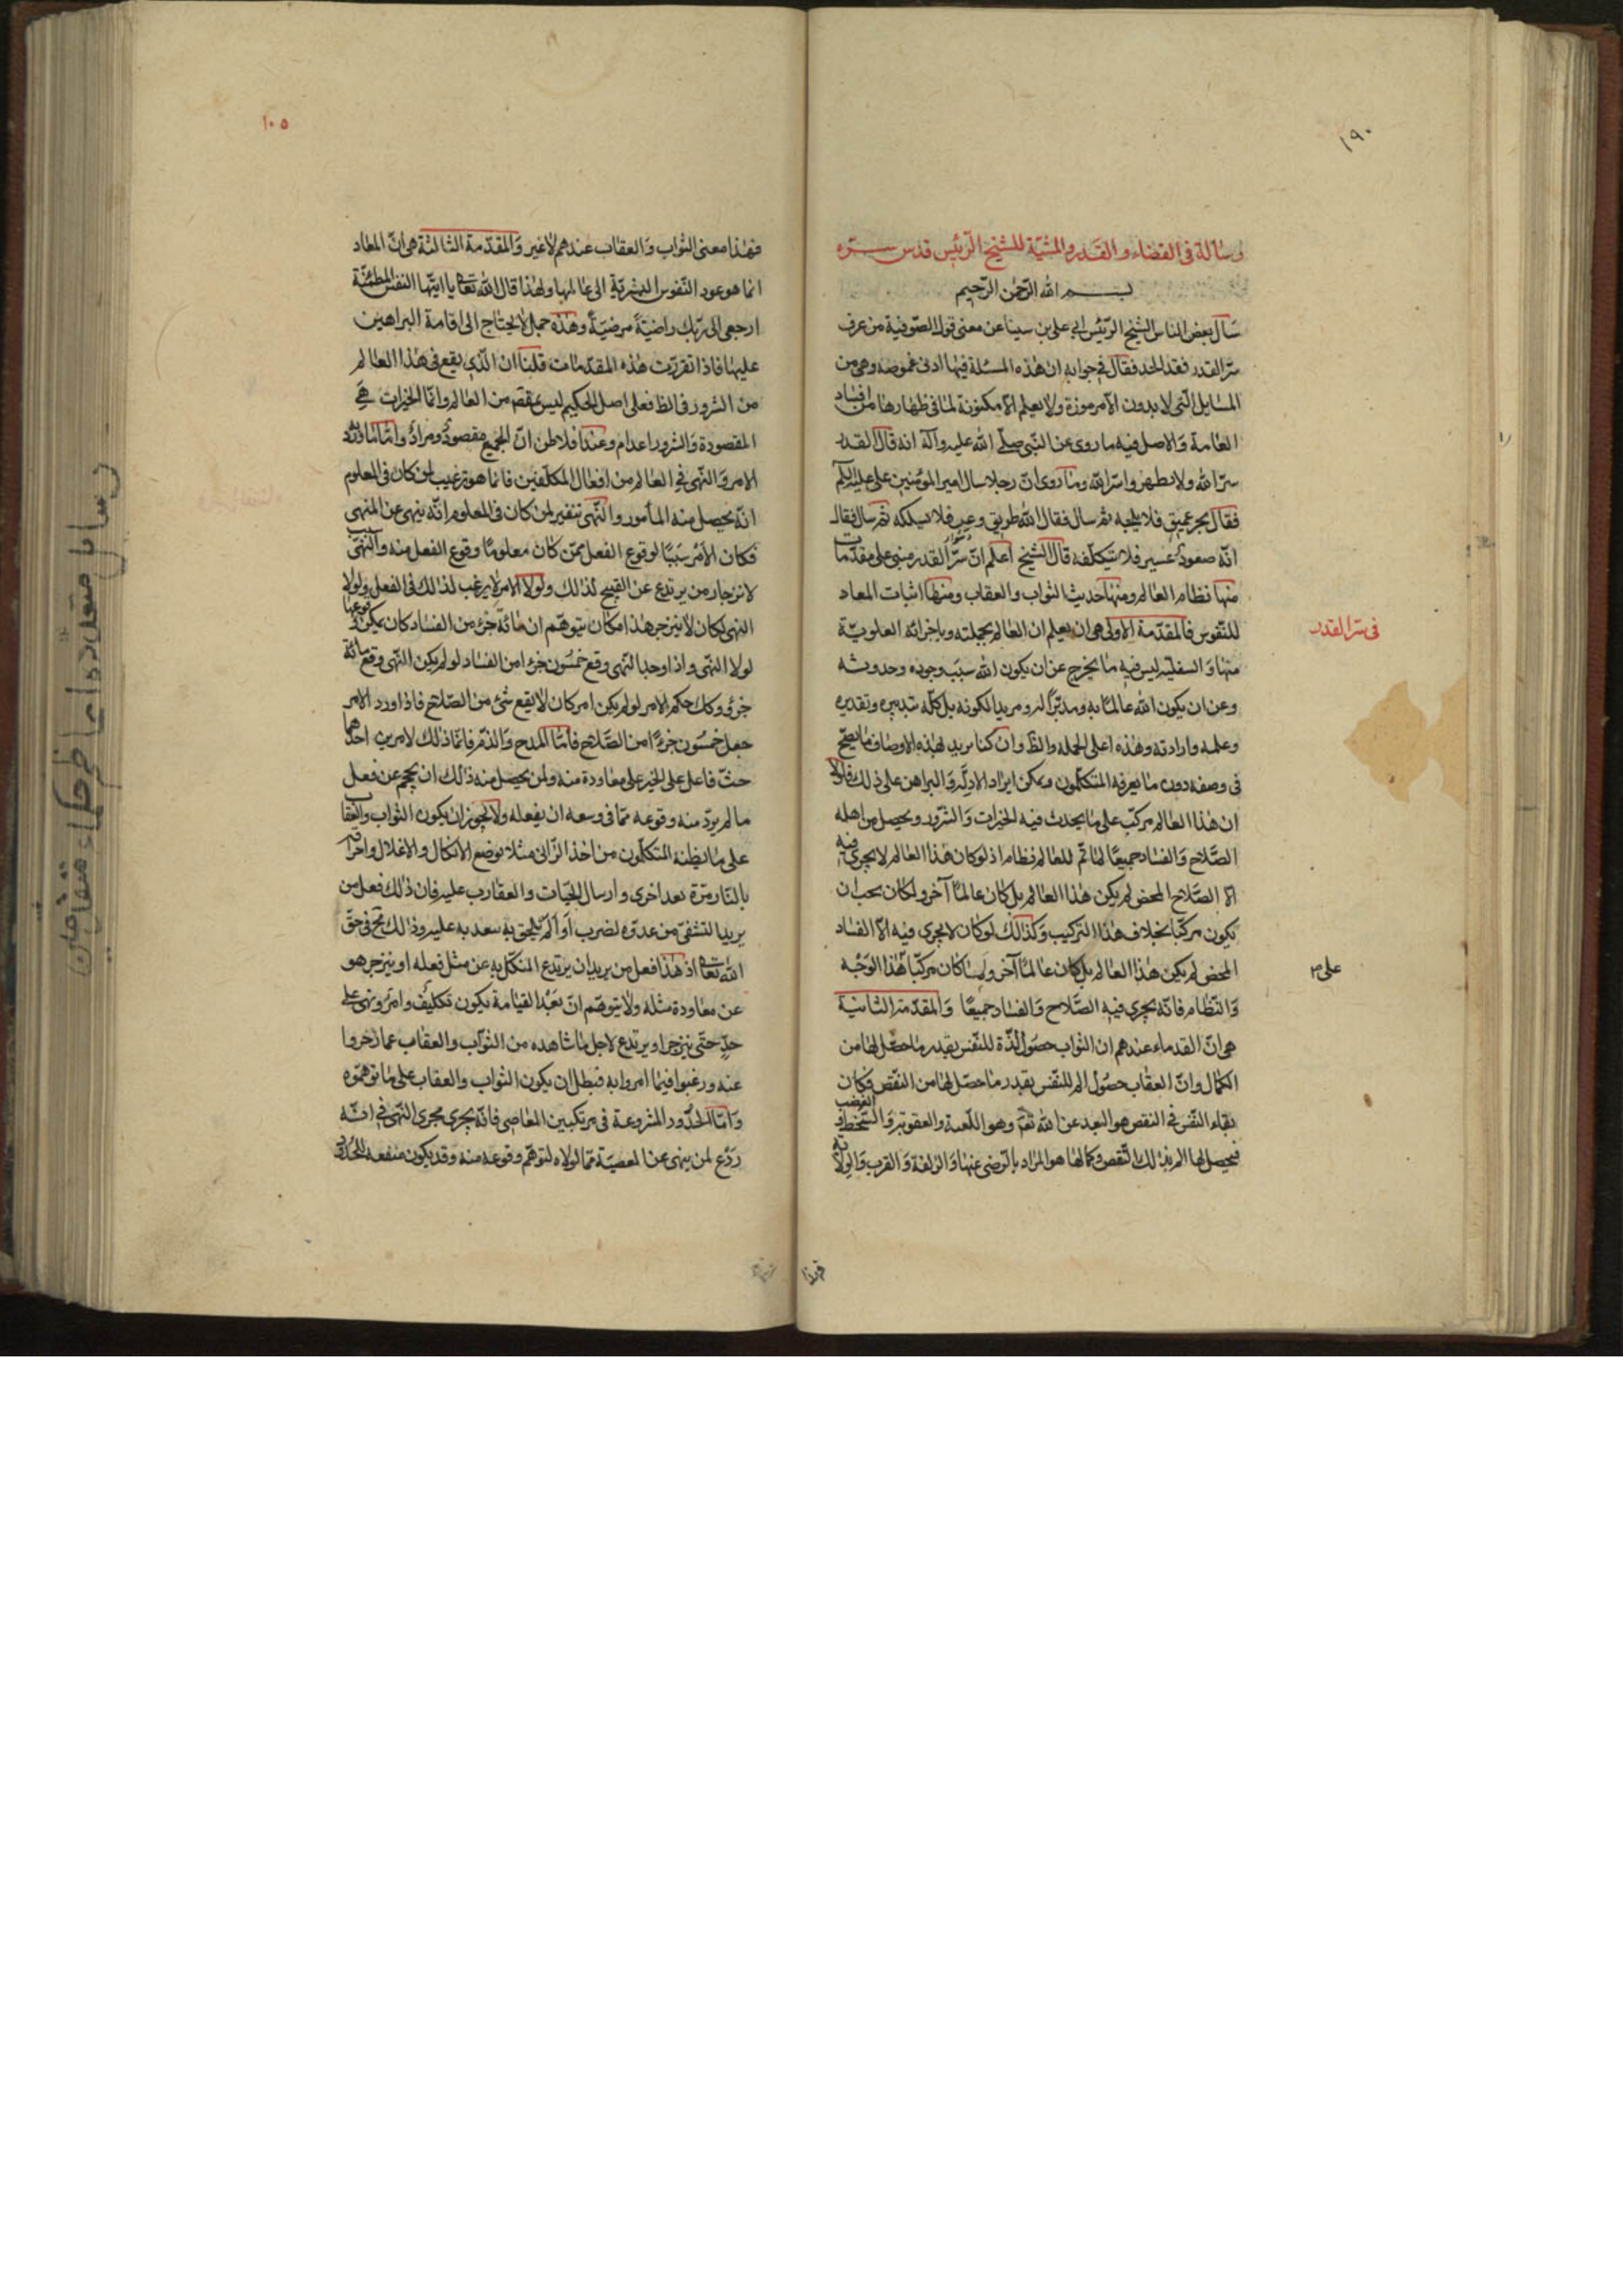 ١٩٠
رسالة فى القضاء و القدر و المشيّة للشيخ الرّئيس قدس سرّه
بسم الله الرّحمن الرّحيم
سَأل بعض الناس الشيخ الرّئيس ابى على بن سينا عن معنى قول الصّوفية من عرف
سرّ القدر فقد الحد فقال فى جوابه ان هذه المسئلة فيها ادنى غموضة وهى من
المسايل التّى لا يدون الّا مرموزة ولا يعلم الّا مكنونة لما فى اظهارها من افساد
العامة وَالاصل فيه ما روى عن النبّى صلّى الله عليه وآله انه قال القدر
سرّ الله ولا تظهروا سرّ الله وما روى انّ رجلا سال امير المؤمنين على عليه السّلام
فقال بحر عميق فلا تلجه ثم سال فقال انّه طريق وعر فلا تسلكه ثم سال فقال
انّه صعود عسير فلا تتكلّفه قال الشيخ اعلم انّ سرّ القدر مبنى على مقدّمات
منها نظام العالم ومنها حديث الثواب والعقاب ومنها اثبات المعاد
للنّفوس فالمقدّمة الاولى هى ان يعلم ان العالم بجملته وباجزائه العلويّة
فى سرّ القدر
منها وَالسفليّه ليس فيه ما يخرج عن ان يكون الله سبب وجوده وحدوثه
وعن ان يكون الله عالمًا به ومدبّرًا له و مريدا لكونه بل كلّه بتدبيره وتقديره
وعلمه وارادته وهذه اعلى الجمله والظ وان كنا نريد لهذه الاوصاف ما يصحّ
فى وصفه دون ما يعرفه المتكلّمون ويمكن ايراد الادلّة وَالبراهن على ذلك فلولا
ان هذا العالم مركّب على ما يحدث فيه الخيرات وَالشرور ويحصل من اهله
الصَّلاح وَالفساد جميعًا لما تمّ للعالم نظام اذ لو كان هذا العالم لا يجرى فيه
الّا الصّلاح المحض لم يكن هذا العالم بل كان عالمًا آخر ولكان يجب ان
يكون مركّبا بخلاف هذا التركيب وَكذالك لو كان لا يجرى فيه الّا الفساد
المحض لم يكن هذا العالم بل كان عالمًا آخر ولما كان مركّبا هذا الوَجْه
على
وَالنّظام فانّه يجرى فيه الصّلاح وَالفساد جميعًا وَالمقدّمة الثانية
هى انّ القدماء عندهم ان الثواب حصول لذّة للنّفس بقدر ما حصّل لها من
الكمال وانّ العقاب حصُول الم للنّفس بقدر ما حصّل لها من النّقص فكان
بقاء النّفس فى النقص هو البعد عن الله تعَ وهو اللّعنة والعقوبة وَالسّخط و الغضب
فيحصل لها الم بذلك النّقص وكمالها هو المراد بالرّضى عنها وَالزلفة وَالقرب وَالولاية
فهذا
١٠٥
فهذا معنى الثواب وَالعقاب عندهم لا غير وَالمقدّمة الثالثة هى انّ المعاد
انما هو عود النّفوس البشريّة الى عالمها ولهذا قال الله تعالى يا ايتّها النفس المطمئنّة
ارجعى الى ربّك راضيَة مرضيّةً وهذه جمل لا يحتاج الى اقامة البراهين
عليها فاذا تقررّت هذه المقدّمات قلنا ان الّذى يقع فى هذا العالم
من الشرور فى الظ فعلى اصل الحكيم ليس بمقصود من العالم وانّما الخيرات هِىَ
المقصودة وَالشرور اعدام وعند افلاطن انّ الجميع مقصودٌ ومرادٌ وامّا ما ورد
الامر وَالنّهى فى العالم من افعال المكلّفين فانما هو ترغيب لمن كان فى المعلوم
انّه يحصل منه المأمور والنّهى تنفير لمن كان فى المعلوم انّه ينهى عن المنهى
فكان الامر سَببًا لوقوع الفعل ممّن كان معلومًا وقوع الفعل منه والنّهى سبب
لانزجار من يرتدع عن القبيح لذلك ولولا الامر لا يرغب لذالك فى الفعل ولولا
النهى لكان لا ينزجر هذا فكان يتوهّم ان مائة جزء من الفساد كان يمكن وقوعها
لولا النهّى واذا وجد النّهى وقع خمسُون جزءا من الفساد لو لم يكن النّهى وقع مائة
جزؤ وكك حكم الامر لو لم يكن امر كان لا يقع شئ من الصّلاح فاذا ورد الامر
حصل خمسُون جزءًا من الصّلاح فامّا المدح وَالذمّ فانّما ذلك لامرين احدهما
حثّ فاعل على الخير على معاودة منه ولمن يحصل منه ذالك ان يحجم عن فعل
ما لم يردّ منه وقوعه ممّا فى وسعه ان يفعله ولا يجوز ان يكون الثواب والعقاب
على ما يظنه المتكلّمون من اخذ الزّانى مثلا بوضع الانكال والاغلال واحراقه
بالنّار مرّة بعد اخرى وارسال الحيّات والعقارب عليه فان ذالك فعل من
يريد التشفّى من عدوّه لضرب اَو اَلَم يلحق به بتعديه عليه وذالك مح فى حقّ
الله تعالى اذ هذا فعل من يريد ان يرتدع المنكّل به عن مثل فعله او ينزجر هو
عن معاودة مثله ولا يتوهّم انّ بَعْد القيامة يكون تكليفٌ وامرٌ ونهى على
حدٍّ حتّى ينزجر او يرتدع لاجل ما شاهده من الثواب والعقاب عما زجروا
عنه ورغبوا فيما امروا به فبطل ان يكون الثواب والعقاب على ما توهّموه
وَامّا الحدُود المشروعة فى مرتكبين المعاصى فانّه يجرى مجرى النّهى فى انّه
رَدْع لمن ينهى عن المعصيّة ممّا لولاه لتوهّم وقوعه منه وقد يكون منفعه الحدّ
رسايل متعدده از حكماء متقدمين